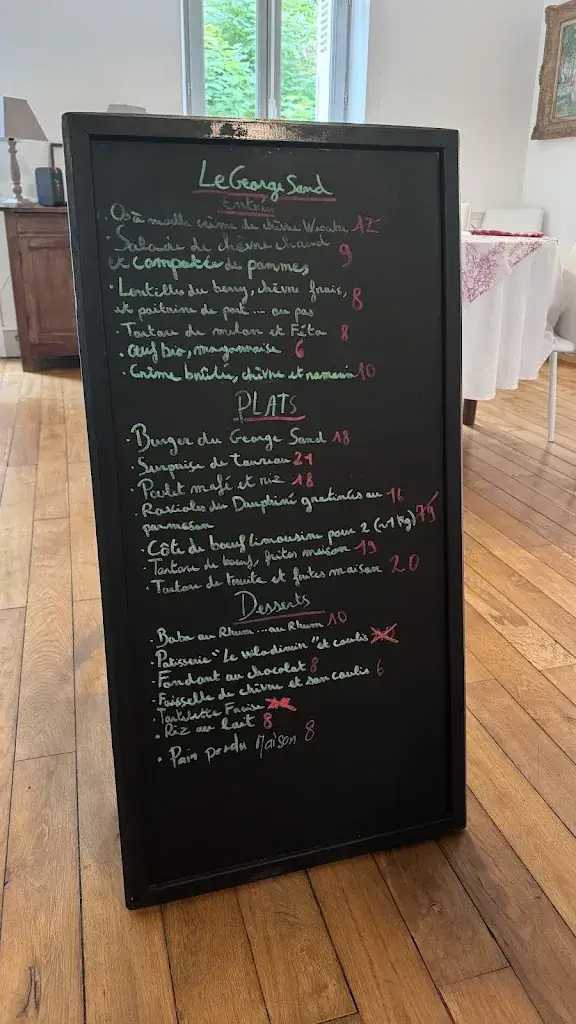 Le George Sand
Entrées
. Os à moelle crème de chèvre Wasabi 12
. Salade de chèvre chaud 9
et compotée de pommes
. Lentilles du berry, chèvre frais, 8
et poitrine de porc ... ou pas
. Tartare de melon et Féta 8
. œuf bio, mayonnaise 6
. Crème brûlée, chèvre et romarin 10
PLATS
. Burger du George Sand 18
. Surprise de taureau 21
. Poulet mafé et riz 18
. Ravioles du Dauphiné gratinées au 16
parmesan
. Côte de boeuf limousine pour 2 (~1 kg) 79
. Tartare de boeuf, frites maison 19
. Tartare de truite et frites maison 20
Desserts
. Baba au Rhum ... au Rhum 10
. Patisserie "Le Wladimir" et coulis
. Fondant au chocolat 8
. Faisselle de chèvre et son coulis 6
. Tartelette Fraise
. Riz au lait 8
. Pain perdu Maison 8